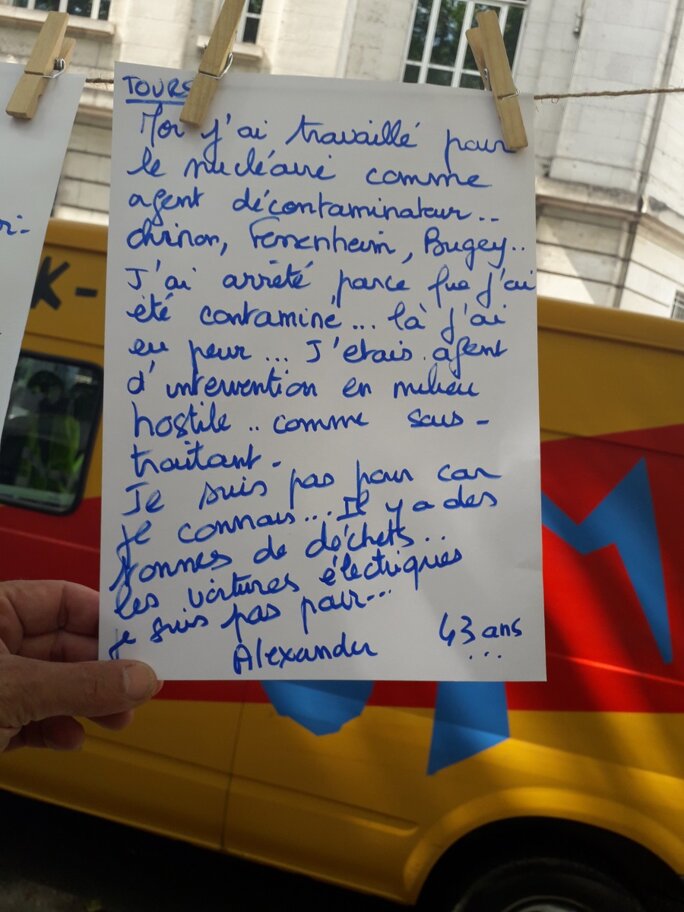 TOURS
Moi j'ai travaillé pour
le nucléaire comme
agent décontaminateur..
chinon, Fessenheim, Bugey..
J'ai arrêté parce que j'ai
été contaminé... là j'ai
eu peur... J'etais agent
d'intervention en milieu
hostile .. comme sous-
traitant.
Je suis pas pour car
je connais... Il y a des
tonnes de déchets..
les voitures électriques
je suis pas pour...
Alexander 43 ans
...
K-